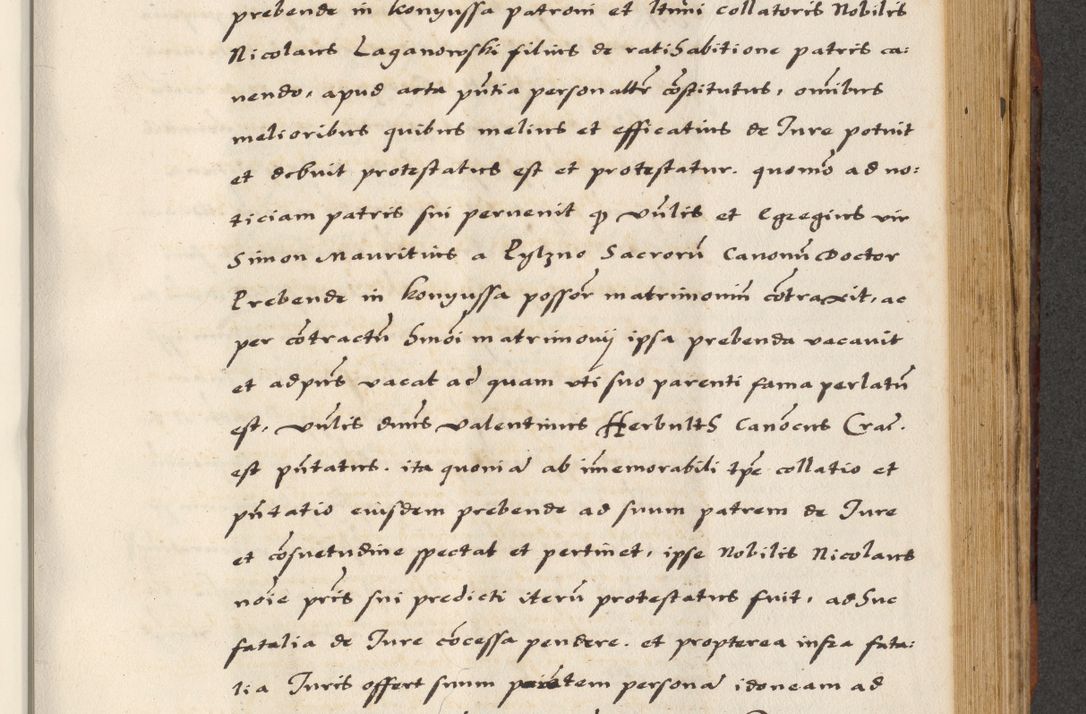 prebende in Konyussa patroni et ltimi collatoris Nobilis
Nicolaus Laganowski filius de ratihabitione patris ca:
nendo, apud acta pñtia personalltr cõstitutus, omĩbus
melioribus quibus melius et efficatius de Iure potuit
et debuit protestatus est et protestatur. quomõ ad no:
ticiam patris sui peruenit qp vñlis et Egregius vir
Simon Mauritius a Pylzno Sacrorũ Canonũ Doctor
Prebende in Konyussa possor matrimoniũ cõtraxit, ac
per cõtractũ hmõi matrimonij ipsa prebenda vacauit
et adpñs vacat ad quam vti suo parenti fama perlatũ
est, vñlis dnus Valentinus Herbulth Canõcus Crac̃.
est pñtatus. ita quoniã ab im̃emorabili tp̃e collatio et
pñtatio eiusdem prebende ad suum patrem de Iure
et cõsuetudine spectat et pertinet, ipse Nobilis Nicolaus
nõie pr̃is sui predicti iterũ protestatus fuit, adhuc
fatalia de Iure cõcessa pendere. et propterea infra fata:
lia Iuris offert suum tem personã idoneam ad